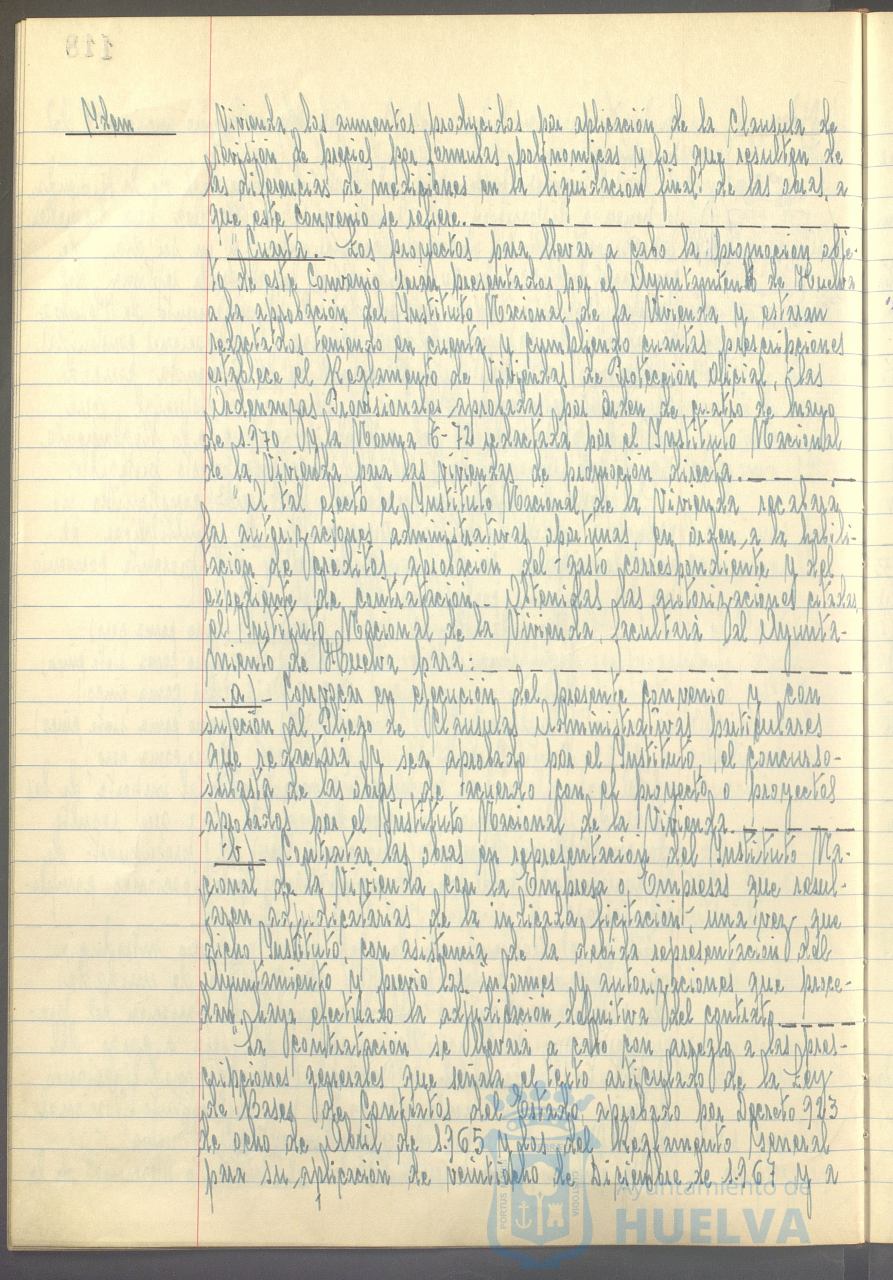 118
Ydem
Vivienda, los aumentos producidos por aplicación de la clausula de
revisión de precios por formulas polinomicas y los que resulten de
las diferencias de mediciones en la liquidación final de las obras, a
que este convenio se refiere.
"Cuarta.- Los proyectos para llevar a cabo la promoción obje-
to de este Convenio serán presentados por el Ayuntamiento de Huelva
a la aprobación del Instituto Nacional de la Vivienda y estaran
redactados teniendo en cuenta y cumpliendo cuantas prescripciones
establece el Reglamento de Viviendas de Protección Oficial, las
Ordenanzas Provisionales aprobadas por Orden de cuatro de mayo
de 1.970 y la Norma 6-72 redactada por el Instituto Nacional
de la Vivienda para las viviendas de promoción directa.
"A tal efecto el Instituto Nacional de la Vivienda recabará
las autorizaciones administrativas oportunas, en orden, a la habili-
tación de créditos, aprobación del gasto correspondiente y del
expediente de contratación. Obtenidas las autorizaciones citadas,
el Instituto Nacional de la Vivienda, facultará al Ayunta-
miento de Huelva para:
a).- Convocar en ejecución del presente convenio y con
sujeción al Pliego de Clausulas Administrativas particulares
que redactará y sea aprobado por el Instituto, el concurso-
subasta de las obras, de acuerdo con el proyecto o proyectos
aprobados por el Instituto Nacional de la Vivienda.
b).- Contratar las obras en representación del Instituto Na-
cional de la Vivienda con la Empresa o Empresas que resul-
taren adjudicatarias de la indicada licitación, una vez que
dicho Instituto, con asistencia de la debida representación del
Ayuntamiento y previo los informes y autorizaciones que proce-
dan, haya efectuado la adjudicación definitiva del contrato.
"La contratación se llevará a cabo con arreglo a las pres-
cripciones generales que señala el texto articulado de la Ley
de Bases de Contratos del Estado aprobado por Decreto 923
de ocho de Abril de 1.965, los del Reglamento General
para su aplicación de veintiocho de Diciembre de 1.967 y a
PORTUS
CUSTODIA
Ayuntamiento de
HUELVA